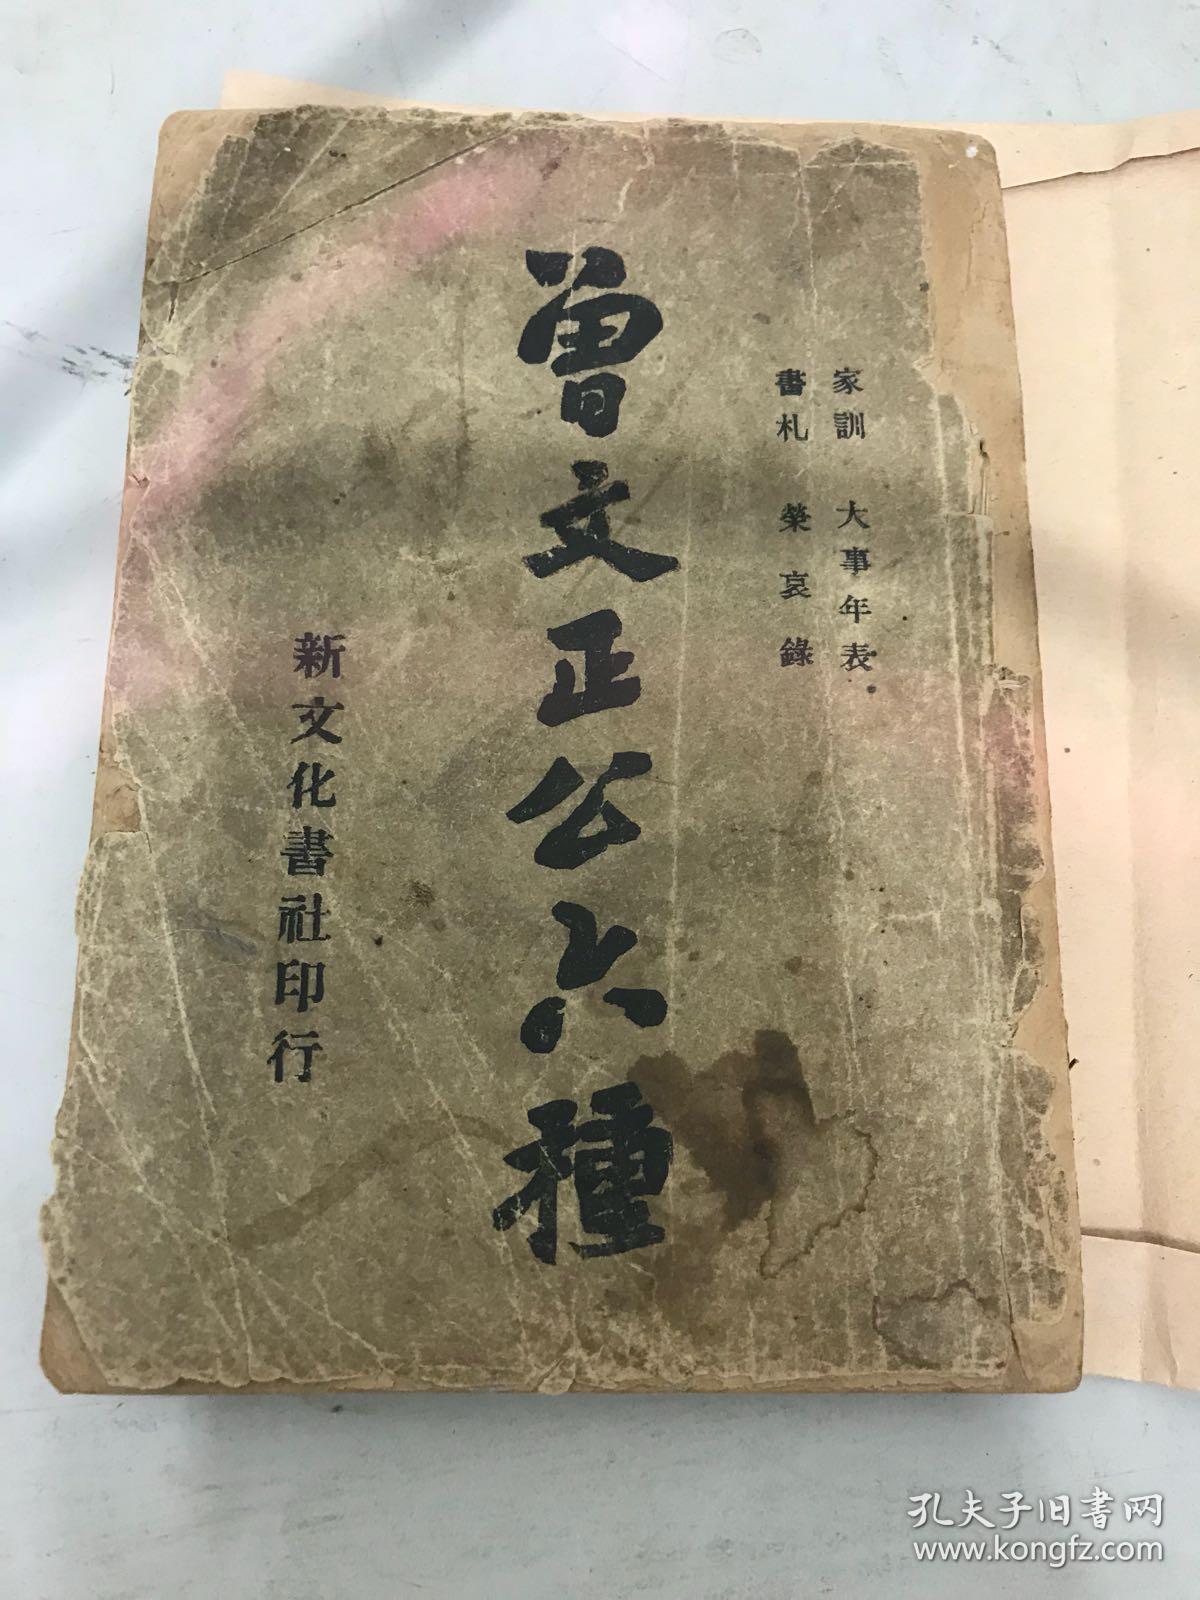 家訓 大事年表
書札 榮哀錄
曾文正公六種
新文化書社印行
孔夫子旧書网
www.kongfz.com